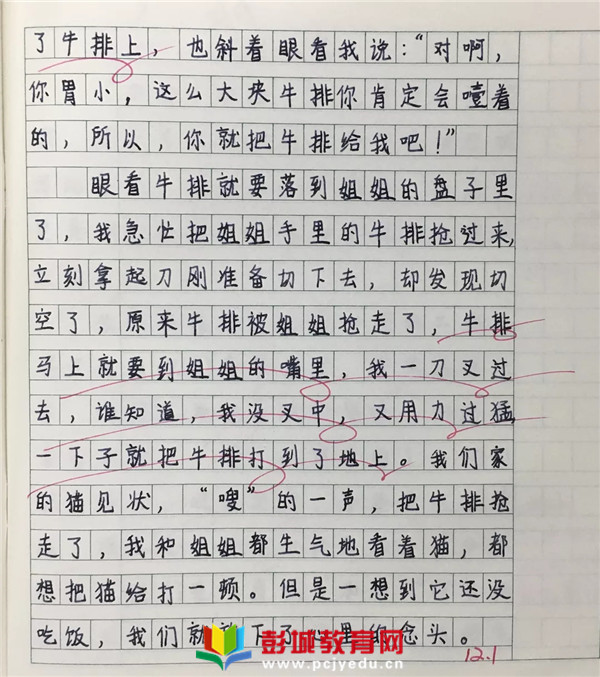 了牛排上，也斜着眼看我说：“对啊，
你胃小，这么大块牛排你肯定会噎着
的，所以，你就把牛排给我吧！”
眼看牛排就要落到姐姐的盘子里
了，我急忙把姐姐手里的牛排抢过来，
立刻拿起刀刚准备切下去，却发现切
空了，原来牛排被姐姐抢走了，牛排
马上就要到姐姐的嘴里，我一刀叉过
去，谁知道，我没叉中，又用力过猛，
一下子就把牛排打到了地上。我们家
的猫见状，“嗖”的一声，把牛排抢
走了，我和姐姐都生气地看着猫，都
想把猫给打一顿。但是一想到它还没
吃饭，我们就放下了心里的念头。
12.1
彭城教育网
www.pcjyedu.cn